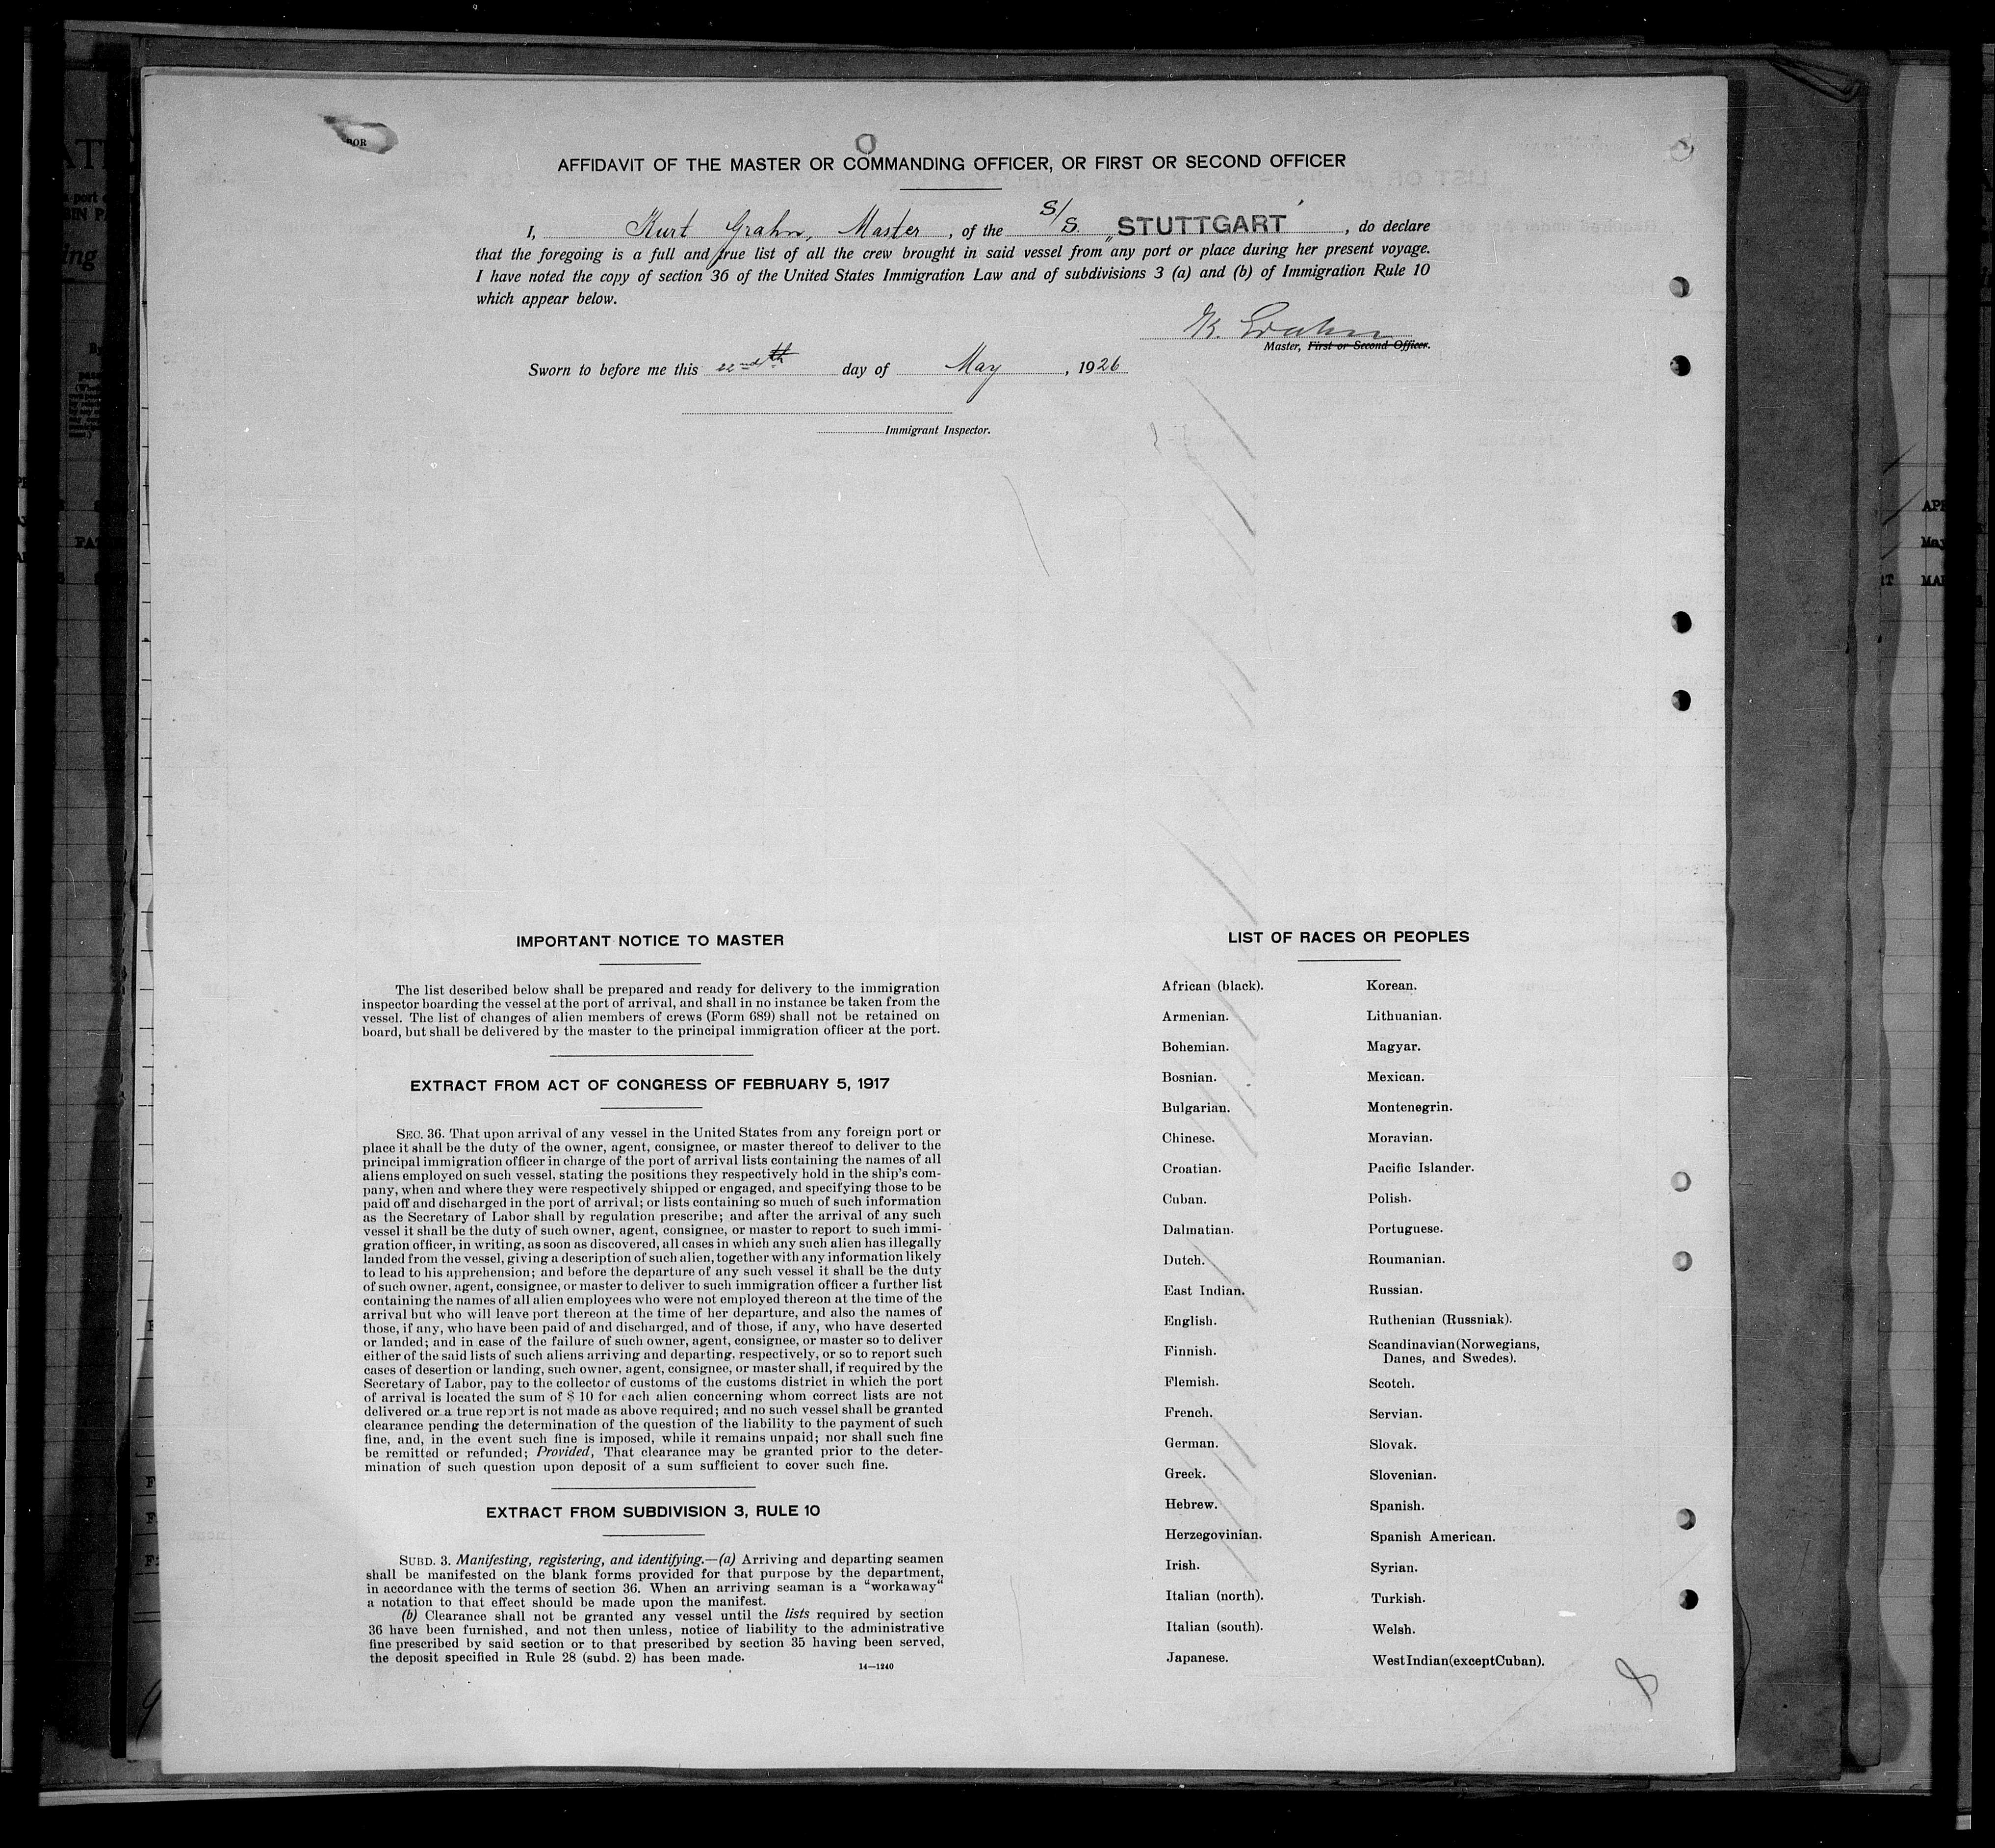 BOR
AFFIDAVIT OF THE MASTER OR COMMANDING OFFICER, OR FIRST OR SECOND OFFICER
I, Kurt Grahn, Master, of the S/S. „STUTTGART", do declare
that the foregoing is a full and true list of all the crew brought in said vessel from any port or place during her present voyage.
I have noted the copy of section 36 of the United States Immigration Law and of subdivisions 3 (a) and (b) of Immigration Rule 10
which appear below.
K. Grahn
Master, First or Second Officer.
Sworn to before me this 22nd th day of May, 1926
Immigrant Inspector.
IMPORTANT NOTICE TO MASTER
The list described below shall be prepared and ready for delivery to the immigration
inspector boarding the vessel at the port of arrival, and shall in no instance be taken from the
vessel. The list of changes of alien members of crews (Form 689) shall not be retained on
board, but shall be delivered by the master to the principal immigration officer at the port.
EXTRACT FROM ACT OF CONGRESS OF FEBRUARY 5, 1917
SEC. 36. That upon arrival of any vessel in the United States from any foreign port or
place it shall be the duty of the owner, agent, consignee, or master thereof to deliver to the
principal immigration officer in charge of the port of arrival lists containing the names of all
aliens employed on such vessel, stating the positions they respectively hold in the ship's com-
pany, when and where they were respectively shipped or engaged, and specifying those to be
paid off and discharged in the port of arrival; or lists containing so much of such information
as the Secretary of Labor shall by regulation prescribe; and after the arrival of any such
vessel it shall be the duty of such owner, agent, consignee, or master to report to such immi-
gration officer, in writing, as soon as discovered, all cases in which any such alien has illegally
landed from the vessel, giving a description of such alien, together with any information likely
to lead to his apprehension; and before the departure of any such vessel it shall be the duty
of such owner, agent, consignee, or master to deliver to such immigration officer a further list
containing the names of all alien employees who were not employed thereon at the time of the
arrival but who will leave port thereon at the time of her departure, and also the names of
those, if any, who have been paid of and discharged, and of those, if any, who have deserted
or landed; and in case of the failure of such owner, agent, consignee, or master so to deliver
either of the said lists of such aliens arriving and departing, respectively, or so to report such
cases of desertion or landing, such owner, agent, consignee, or master shall, if required by the
Secretary of Labor, pay to the collector of customs of the customs district in which the port
of arrival is located the sum of $ 10 for each alien concerning whom correct lists are not
delivered or a true report is not made as above required; and no such vessel shall be granted
clearance pending the determination of the question of the liability to the payment of such
fine, and, in the event such fine is imposed, while it remains unpaid; nor shall such fine
be remitted or refunded; Provided, That clearance may be granted prior to the deter-
mination of such question upon deposit of a sum sufficient to cover such fine.
EXTRACT FROM SUBDIVISION 3, RULE 10
SUBD. 3. Manifesting, registering, and identifying.—(a) Arriving and departing seamen
shall be manifested on the blank forms provided for that purpose by the department,
in accordance with the terms of section 36. When an arriving seaman is a “workaway“
a notation to that effect should be made upon the manifest.
(b) Clearance shall not be granted any vessel until the lists required by section
36 have been furnished, and not then unless, notice of liability to the administrative
fine prescribed by said section or to that prescribed by section 35 having been served,
the deposit specified in Rule 28 (subd. 2) has been made.
14—1240
LIST OF RACES OR PEOPLES
African (black).
Armenian.
Bohemian.
Bosnian.
Bulgarian.
Chinese.
Croatian.
Cuban.
Dalmatian.
Dutch.
East Indian.
English.
Finnish.
Flemish.
French.
German.
Greek.
Hebrew.
Herzegovinian.
Irish.
Italian (north).
Italian (south).
Japanese.
Korean.
Lithuanian.
Magyar.
Mexican.
Montenegrin.
Moravian.
Pacific Islander.
Polish.
Portuguese.
Roumanian.
Russian.
Ruthenian (Russniak).
Scandinavian (Norwegians,
Danes, and Swedes).
Scotch.
Servian.
Slovak.
Slovenian.
Spanish.
Spanish American.
Syrian.
Turkish.
Welsh.
West Indian (except Cuban).
8